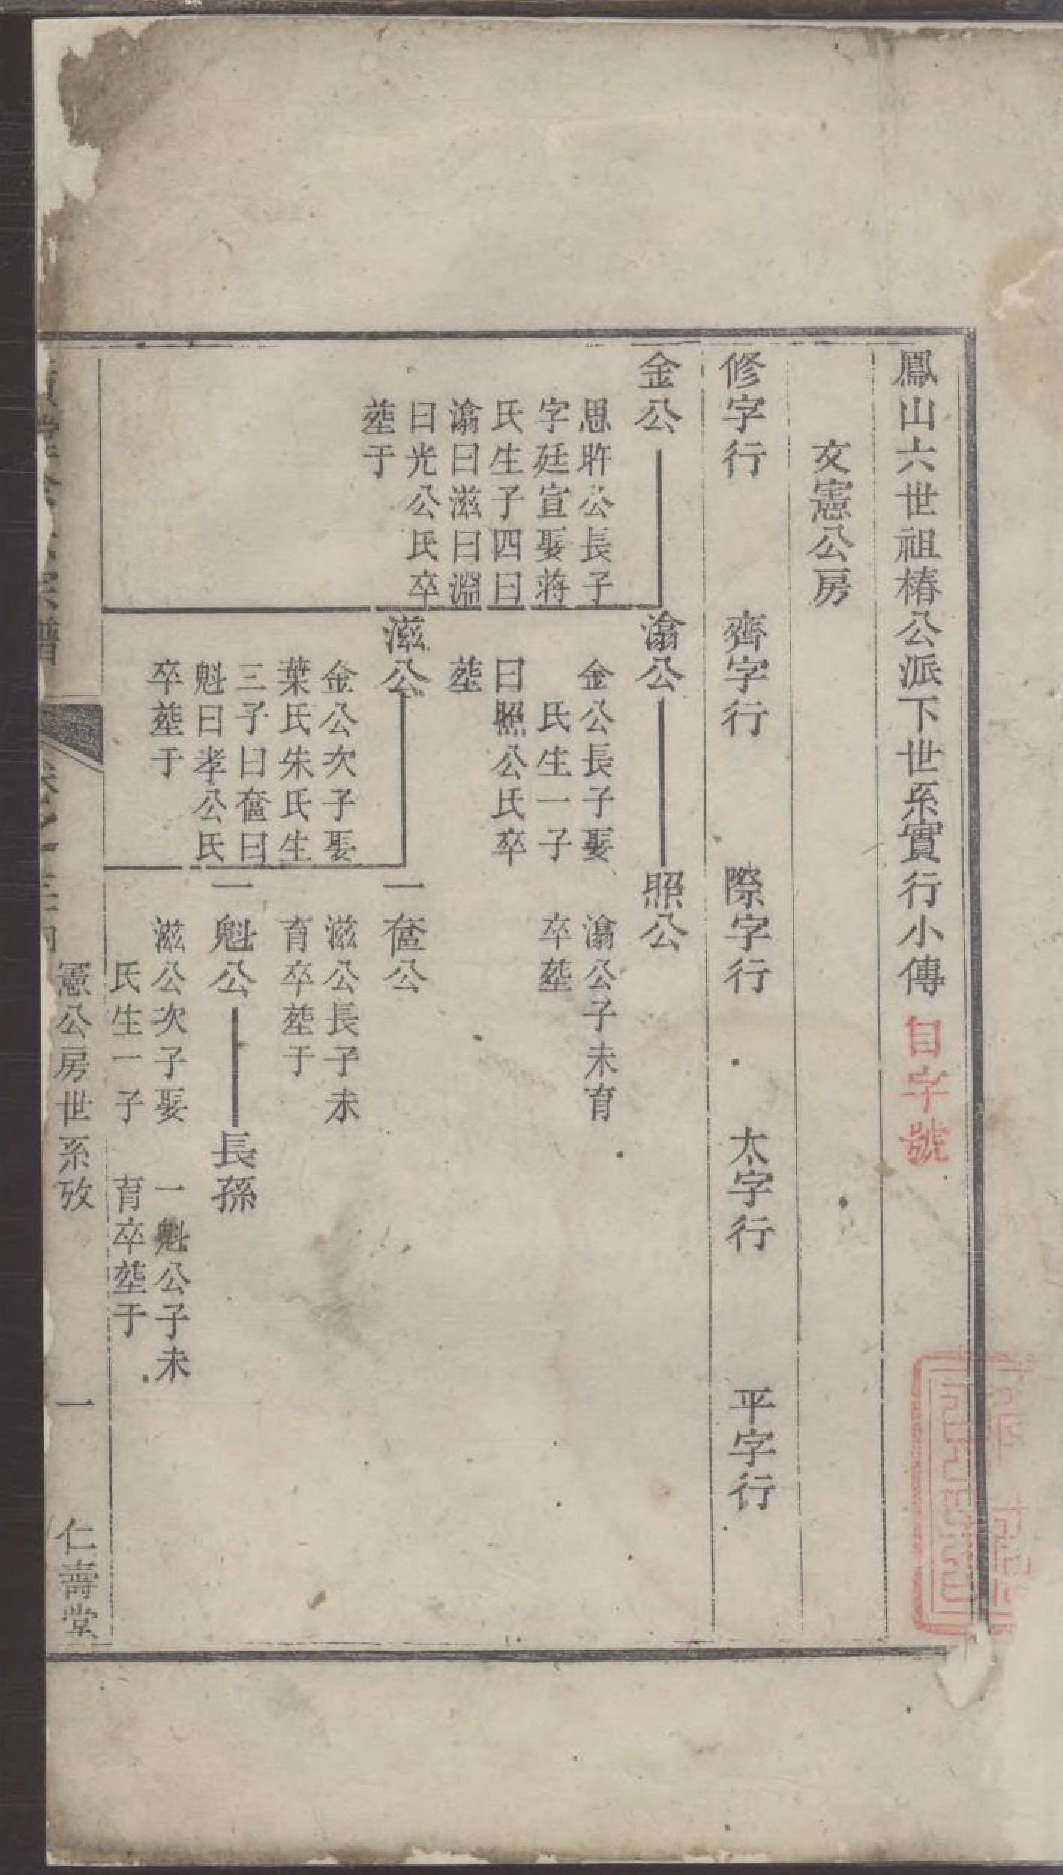 鳳山六世祖椿公派下世系實行小傳 自字號
文憲公房
修字行 齊字行 際字行 太字行 平字行
金公
思昨公長子
字廷宣娶蔣
氏生子四曰
潝曰滋曰淵
曰光公氏卒
塟于
潝公
金公長子娶
氏生一子
曰照公氏卒
塟
照公
潝公子未育
卒塟
滋公
金公次子娶
葉氏朱氏生
三子曰奩曰
魁曰孝公氏
卒塟于
一奩公
滋公長子未
育卒塟于
一魁公
滋公次子娶
氏生一子
長孫
一魁公子未
育卒塟于
憲公房世系攷 一 仁壽堂